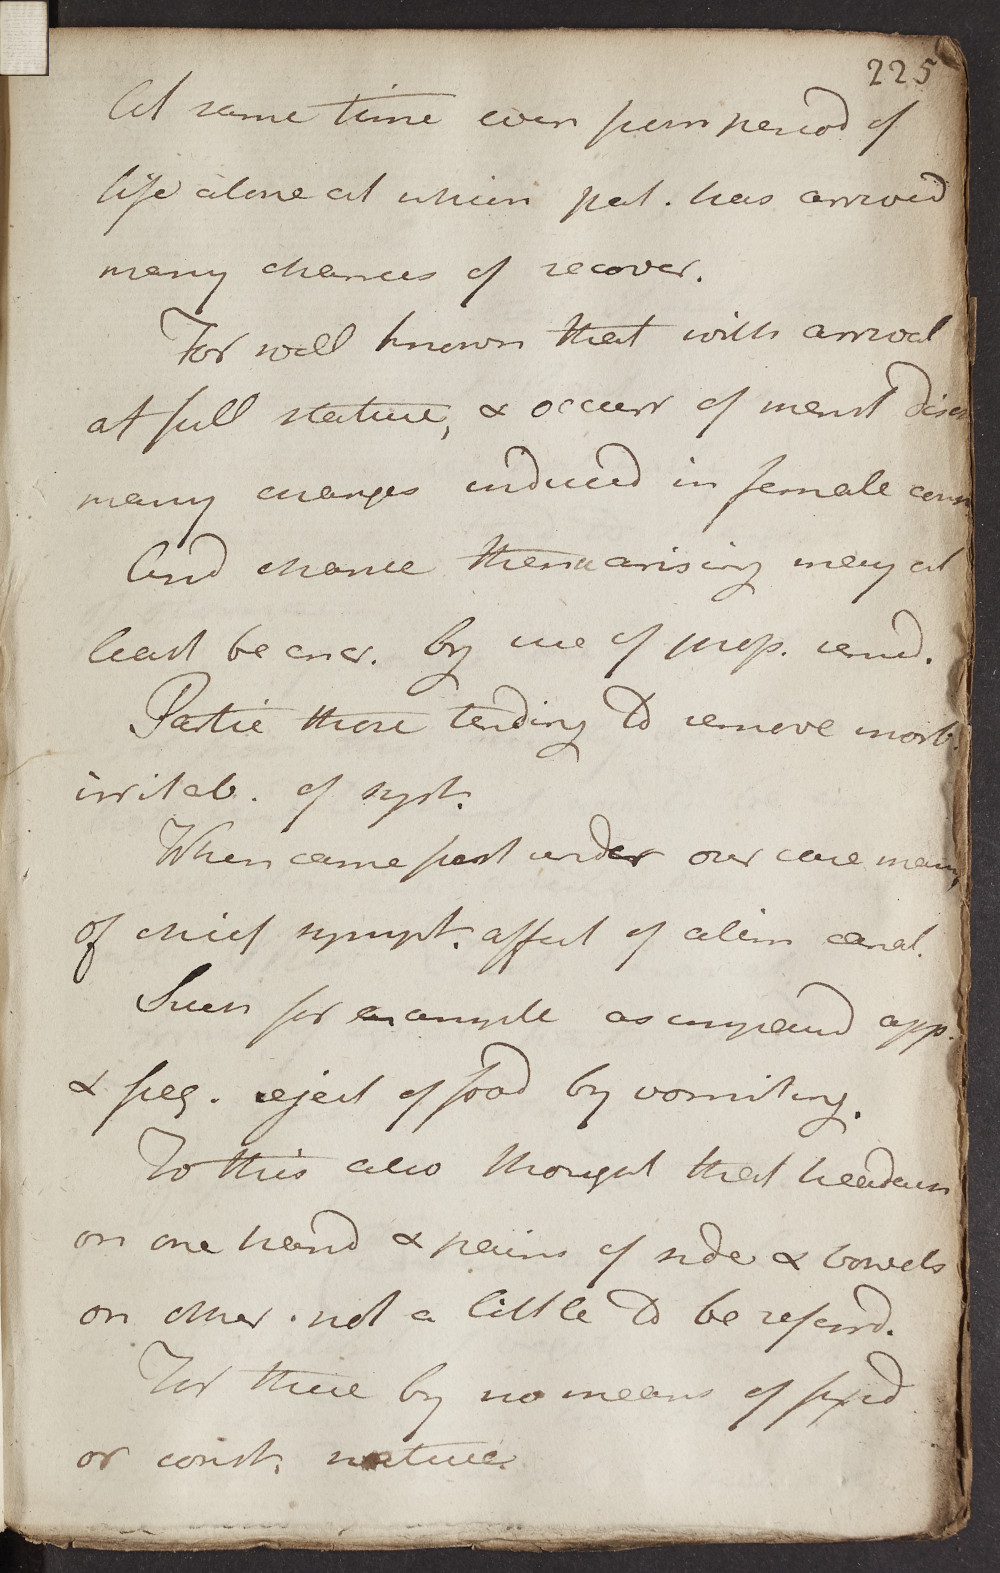 225
At same time even from period of
life alone at which pat. has arrived
many chances of recover.
For well known that with arrival
at full stature, & occurr of menst disch
many changes induced in female con
And chance thence arising may at
least be encr. by use of prop. remed.
Partic those tending to remove morb.
irritab. of syst.
When came first under our care many
of chief sympt. affect of alim canal.
Such for example as impaired app.
& freq. reject of food by vomiting.
To this also thought that headach
on one hand & pains of side & bowels
on other. not a little to be referrd.
For these by no means of fixed
or const. nature.